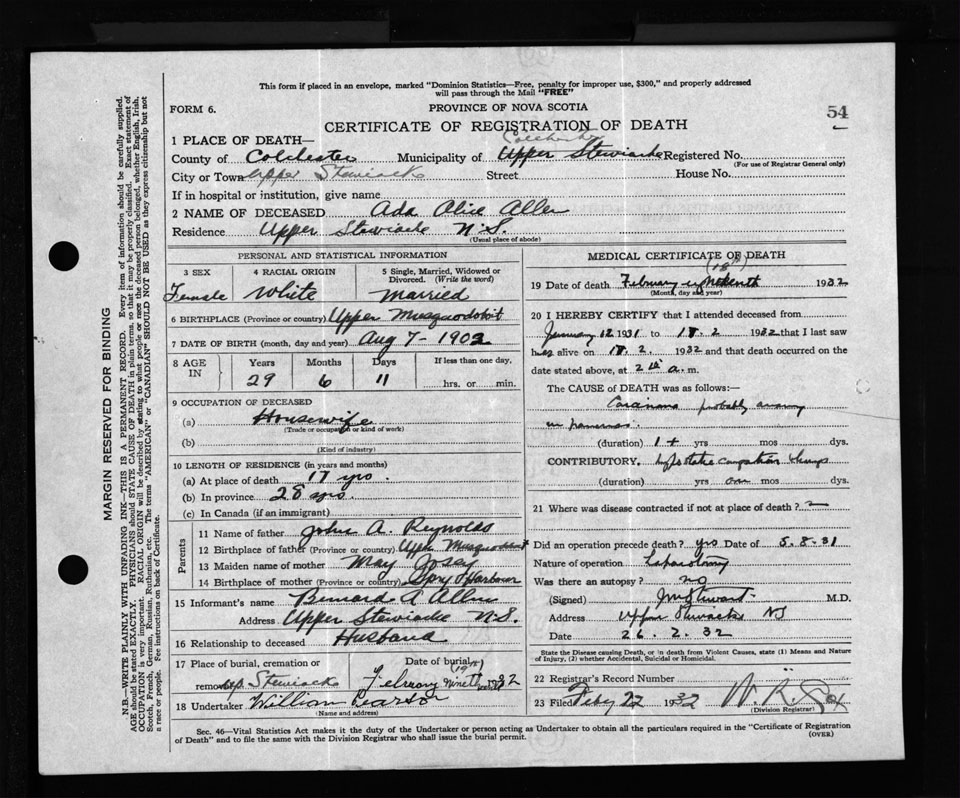 This form if placed in an envelope, marked "Dominion Statistics—Free, penalty for improper use, $300," and properly addressed
will pass through the Mail "FREE"
FORM 6. PROVINCE OF NOVA SCOTIA 54
CERTIFICATE OF REGISTRATION OF DEATH
1 PLACE OF DEATH— Colchester
County of Colchester Municipality of Upper Stewiacke Registered No.
(For use of Registrar General only)
City or Town Upper Stewiacke Street House No.
If in hospital or institution, give name
2 NAME OF DECEASED Ada Alice Allen
Residence Upper Stewiacke N.S.
(Usual place of abode)
PERSONAL AND STATISTICAL INFORMATION
3 SEX 4 RACIAL ORIGIN 5 Single, Married, Widowed or Divorced. (Write the word)
Female White Married
6 BIRTHPLACE (Province or country) Upper Musquodoboit
7 DATE OF BIRTH (month, day and year) Aug 7 - 1902
8 AGE IN Years Months Days If less than one day.
29 6 11 hrs. or min.
9 OCCUPATION OF DECEASED
(a) Housewife
(Trade or occupation or kind of work)
(b)
(Kind of industry)
10 LENGTH OF RESIDENCE (in years and months)
(a) At place of death 17 yrs.
(b) In province 28 yrs.
(c) In Canada (if an immigrant)
Parents
11 Name of father John A. Reynolds
12 Birthplace of father (Province or country) Upper Musquodoboit
13 Maiden name of mother May Josey
14 Birthplace of mother (Province or country) Spry Harbour
15 Informant's name Bernard A Allen
Address Upper Stewiacke N.S.
16 Relationship to deceased Husband
17 Place of burial, cremation or Date of burial
(19th)
removal Up. Stewiacke February Nineteenth 1932
18 Undertaker William Pearson
(Name and address)
MEDICAL CERTIFICATE OF DEATH
(18th)
19 Date of death February eighteenth 1932
(Month, day and year)
20 I HEREBY CERTIFY that I attended deceased from
January 12 1931 to 18.2 1932 that I last saw
her alive on 18.2. 1932 and that death occurred on the
date stated above, at 2 a.m.
The CAUSE of DEATH was as follows:—
Carcinoma probably arising
in pancreas.
(duration) 1+ yrs mos dys.
CONTRIBUTORY. hypostatic congestion lungs
(duration) yrs mos dys.
21 Where was disease contracted if not at place of death? ?
Did an operation precede death? yes Date of 5.8.31
Nature of operation Laparotomy
Was there an autopsy? no
(Signed) M.D.
Address Upper Stewiacke NS
Date 26.2.32
State the Disease causing Death, or in death from Violent Causes, state (1) Means and Nature
of Injury, (2) whether Accidental, Suicidal or Homicidal.
22 Registrar's Record Number
23 Filed Feby 22 1932 W. R.
(Division Registrar)
Sec. 46—Vital Statistics Act makes it the duty of the Undertaker or person acting as Undertaker to obtain all the particulars required in the "Certificate of Registration
of Death" and to file the same with the Division Registrar who shall issue the burial permit. (OVER)
MARGIN RESERVED FOR BINDING
N.B.—WRITE PLAINLY WITH UNFADING INK—THIS IS A PERMANENT RECORD. Every item of information should be carefully supplied.
AGE should be stated EXACTLY. PHYSICIANS should STATE CAUSE OF DEATH in plain terms, so that it may be properly classified. Exact statement of
OCCUPATION is very important. RACIAL ORIGIN will be described by stating to what people or race the deceased person belonged, whether English, Irish,
Scotch, French, German, Russian, Ruthenian, etc. The terms "AMERICAN" or "CANADIAN" SHOULD NOT BE USED as they express citizenship but not
a race or people. Fee instructions on back of Certificate.